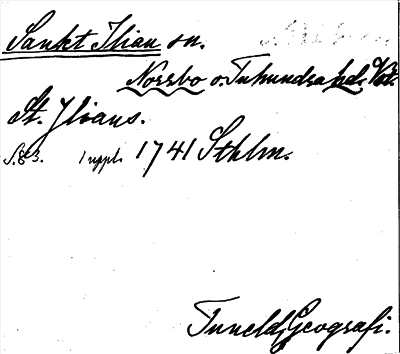 Sankt Ilian sn.
Norrbo o. Tuhundra hd. Vstm.
St. Ilians.
S. 83. 1 uppl. 1741 Sthlm.
Tuneld, Geografi.